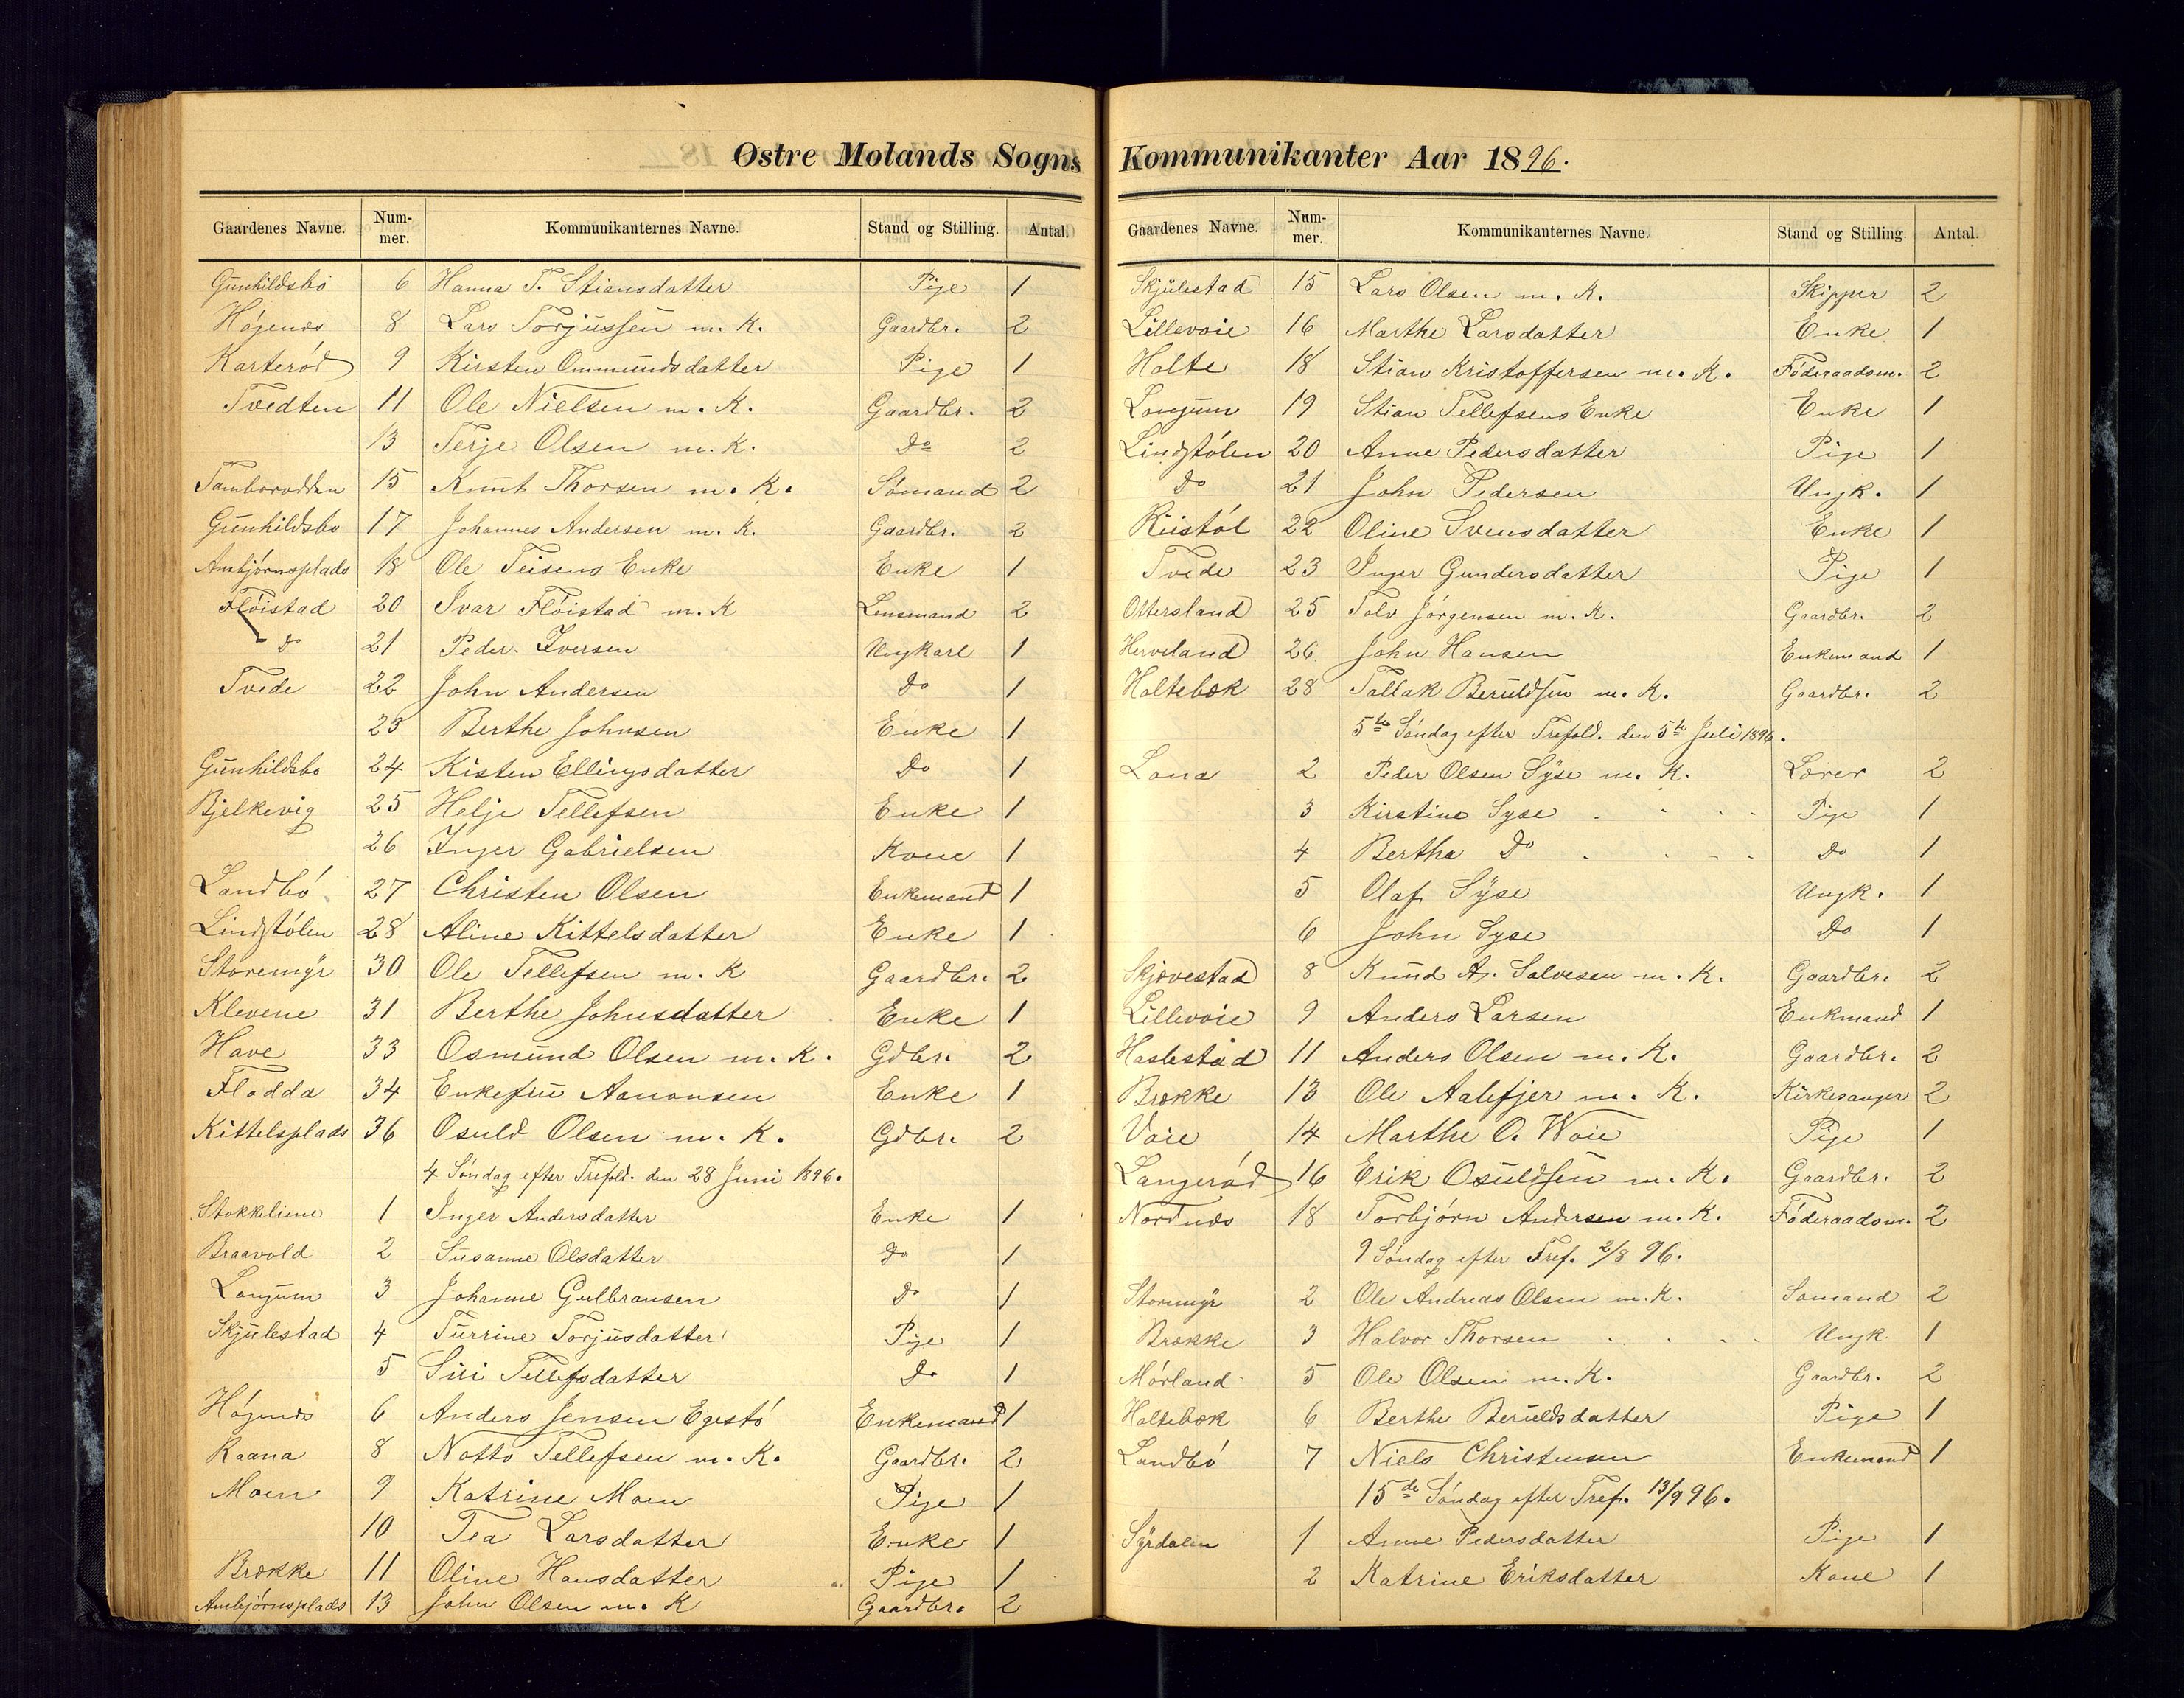 Østre Molands Sogns
Gaardenes Navne. Nummer. Kommunikanternes Navne. Stand og Stilling. Antal.
Gunhildsbo 6 Hanna T. Stiansdatter Pige 1
Högenes 8 Lars Torjussen m. K. Gaardbr. 2
Karteröd 9 Kirsten Ommundsdatter Pige 1
Tvedten 11 Ole Nielsen m. K. Gaardbr. 2
13 Terje Olsen m. K. Do 2
Tamborodden 15 Knut Thorsen m. K. Sömand 2
Gunhildsbo 17 Johannes Andersen m. K. Gaardbr. 2
Ambjörnsplads 18 Ole Teisens Enke Enke 1
Flöistad 20 Ivar Flöistad m. K Lensmand 2
Do 21 Peder Iversen Ungkarl 1
Tvede 22 John Andersen Do 1
23 Berthe Johnsen Enke 1
Gunhildsbo 24 Kisten Ellingsdatter Do 1
Bjelkevig 25 Helje Tellefsen Enke 1
26 Inger Gabrielsen Kone 1
Landbö 27 Christen Olsen Enkemand 1
Lindstölen 28 Aline Kittelsdatter Enke 1
Storemyr 30 Ole Tellefsen m. K Gaardbr. 2
Klevene 31 Berthe Johnsdatter Enke 1
Have 33 Osmund Olsen m. K. Gdbr. 2
Flodda 34 Enkefru Aanonsen Enke 1
Kittelsplads 36 Osuld Olsen m. K. Gdbr. 2
4 Söndag efter Trefold. den 28 Juni 1896.
Stokkeliene 1 Inger Andersdatter Enke 1
Braavold 2 Susanne Olsdatter Do 1
Longum 3 Johanne Gulbransen Do 1
Skjulestad 4 Turrine Torjusdatter Pige 1
5 Siri Tellefsdatter Do 1
Högenes 6 Anders Jensen Egestö Enkemand 1
Raana 8 Notto Tellefsen m. K. Gaardbr. 2
Moen 9 Katrine Moen Pige 1
10 Tea Larsdatter Enke 1
Brække 11 Oline Hansdatter Pige 1
Ambjörnsplads 13 John Olsen m. K Gaardbr. 2
Kommunikanter Aar 1896.
Gaardenes Navne. Nummer. Kommunikanternes Navne. Stand og Stilling. Antal.
Skjulestad 15 Lars Olsen m. K. Skipper 2
Lillevoie 16 Marthe Larsdatter Enke 1
Holte 18 Stian Kristoffersen m. K. Föderaadsm. 2
Longum 19 Stian Tellefsens Enke Enke 1
Lindstölen 20 Anne Pedersdatter Pige 1
Do 21 John Pedersen Ungk. 1
Riistöl 22 Oline Svensdatter Enke 1
Tvede 23 Inger Gundersdatter Pige 1
Ottersland 25 Tolv Jörgensen m. K. Gaardbr. 2
Herveland 26 John Hansen Enkemand 1
Holtebæk 28 Tallak Beruldsen m. K. Gaardbr. 2
5te Söndag efter Trefold. den 5te Juli 1896.
Lona 2 Peder Olsen Syse m. K. Lærer 2
3 Kirstine Syse Pige 1
4 Bertha Do Do 1
5 Olaf Syse Ungk. 1
6 John Syse Do 1
Skjovestad 8 Knud As. Salvesen m. K. Gaardbr. 2
Lillevoie 9 Anders Larsen Enkmand 1
Haslestad 11 Anders Olsen m. K. Gaardbr. 2
Brække 13 Ole Aalefjer m. K. Kirkesanger 2
Voie 14 Marthe O. Woie Pige 1
Langeröd 16 Erik Osuldsen m. K. Gaardbr. 2
Nordnes 18 Torbjörn Andersen m. K. Föderaadsm. 2
9 Söndag efter Tref. 2/8 96.
Storemyr 2 Ole Andreas Olsen m. K. Sömand 2
Brække 3 Halvor Thorsen Ungk. 1
Mörland 5 Ole Olsen m. K. Gaardbr. 2
Holtebæk 6 Berthe Beruldsdatter Pige 1
Landbö 7 Niels Christensen Enkemand 1
15de Söndag efter Tref. 13/9 96.
Syrdalen 1 Anne Pedersdatter Pige 1
2 Katrine Eriksdatter Kone 1